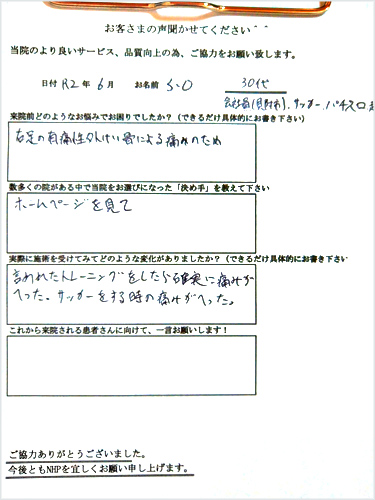 お客さまの声聞かせてください^^
当院のより良いサービス、品質向上の為、ご協力をお願い致します。
日付 R2年 6月 お名前 S.O 30代
サッカー、パチスロ
来院前どのようなお悩みでお困りでしたか？（できるだけ具体的にお書き下さい）
右足の有痛性外けい骨による痛みのため
数多くの院がある中で当院をお選びになった「決め手」を教えて下さい
ホームページを見て
実際に施術を受けてみてどのような変化がありましたか？（できるだけ具体的にお書き下さい
言われたトレーニングをしたら確実に痛みが
へった。サッカーをする時の痛みがへった。
これから来院される患者さんに向けて、一言お願いします！
ご協力ありがとうございました。
今後ともNHPを宜しくお願い申し上げます。